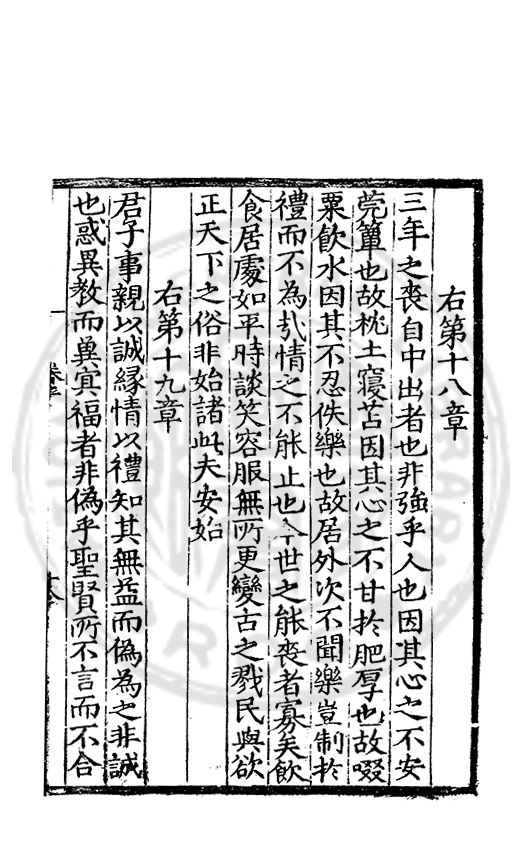 右第十八章
三年之喪自中出者也非強乎人也因其心之不安
莞簟也故枕土寢苫因其心之不甘扵肥厚也故啜
粟飲水因其不忍佚樂也故居外次不聞樂豈制扵
禮而不為㢤情之不能止也今世之能喪者寡矣飲
食居處如平時談笑容服無所更變古之戮民與欲
正天下之俗非始諸此夫安始
右第十九章
君子事親以誠緣情以禮知其無益而偽為之非誠
也惑異教而冀冥福者非偽乎聖賢所不言而不合